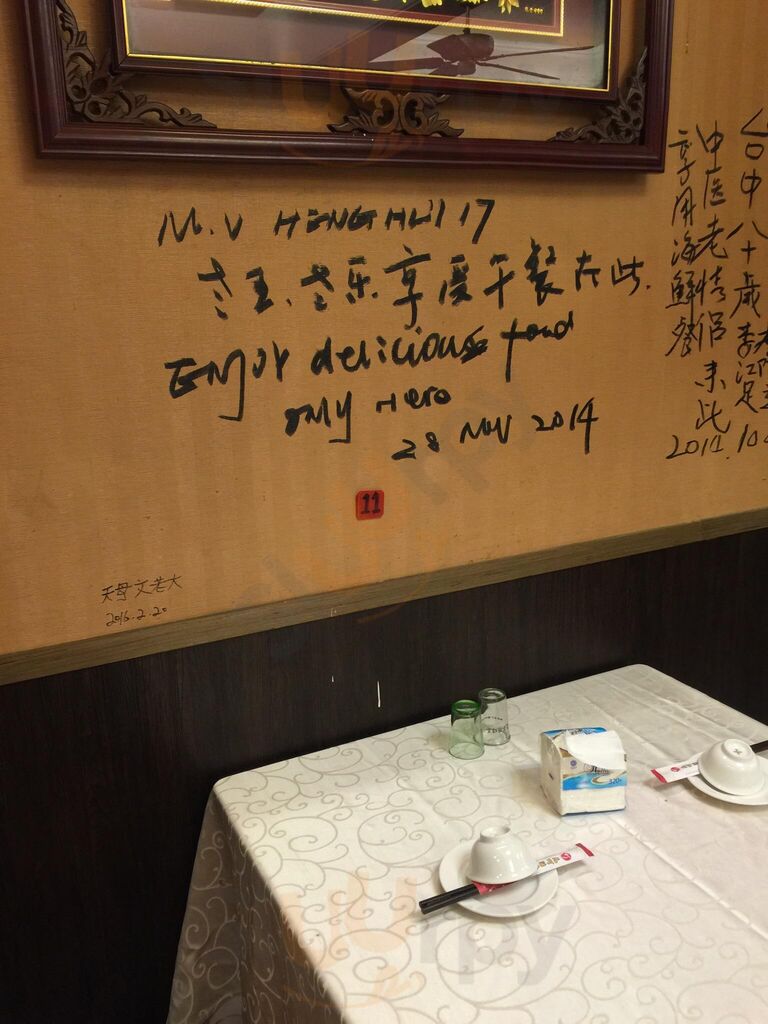 M.V HENG HUI 17
享受午餐在此.
Enjoy delicious food
my Hero
28 NOV 2014
11
天母文老大
2016.2.20
台中八十歲李江
中医老情侣来此
享用海鮮餐
2014.10